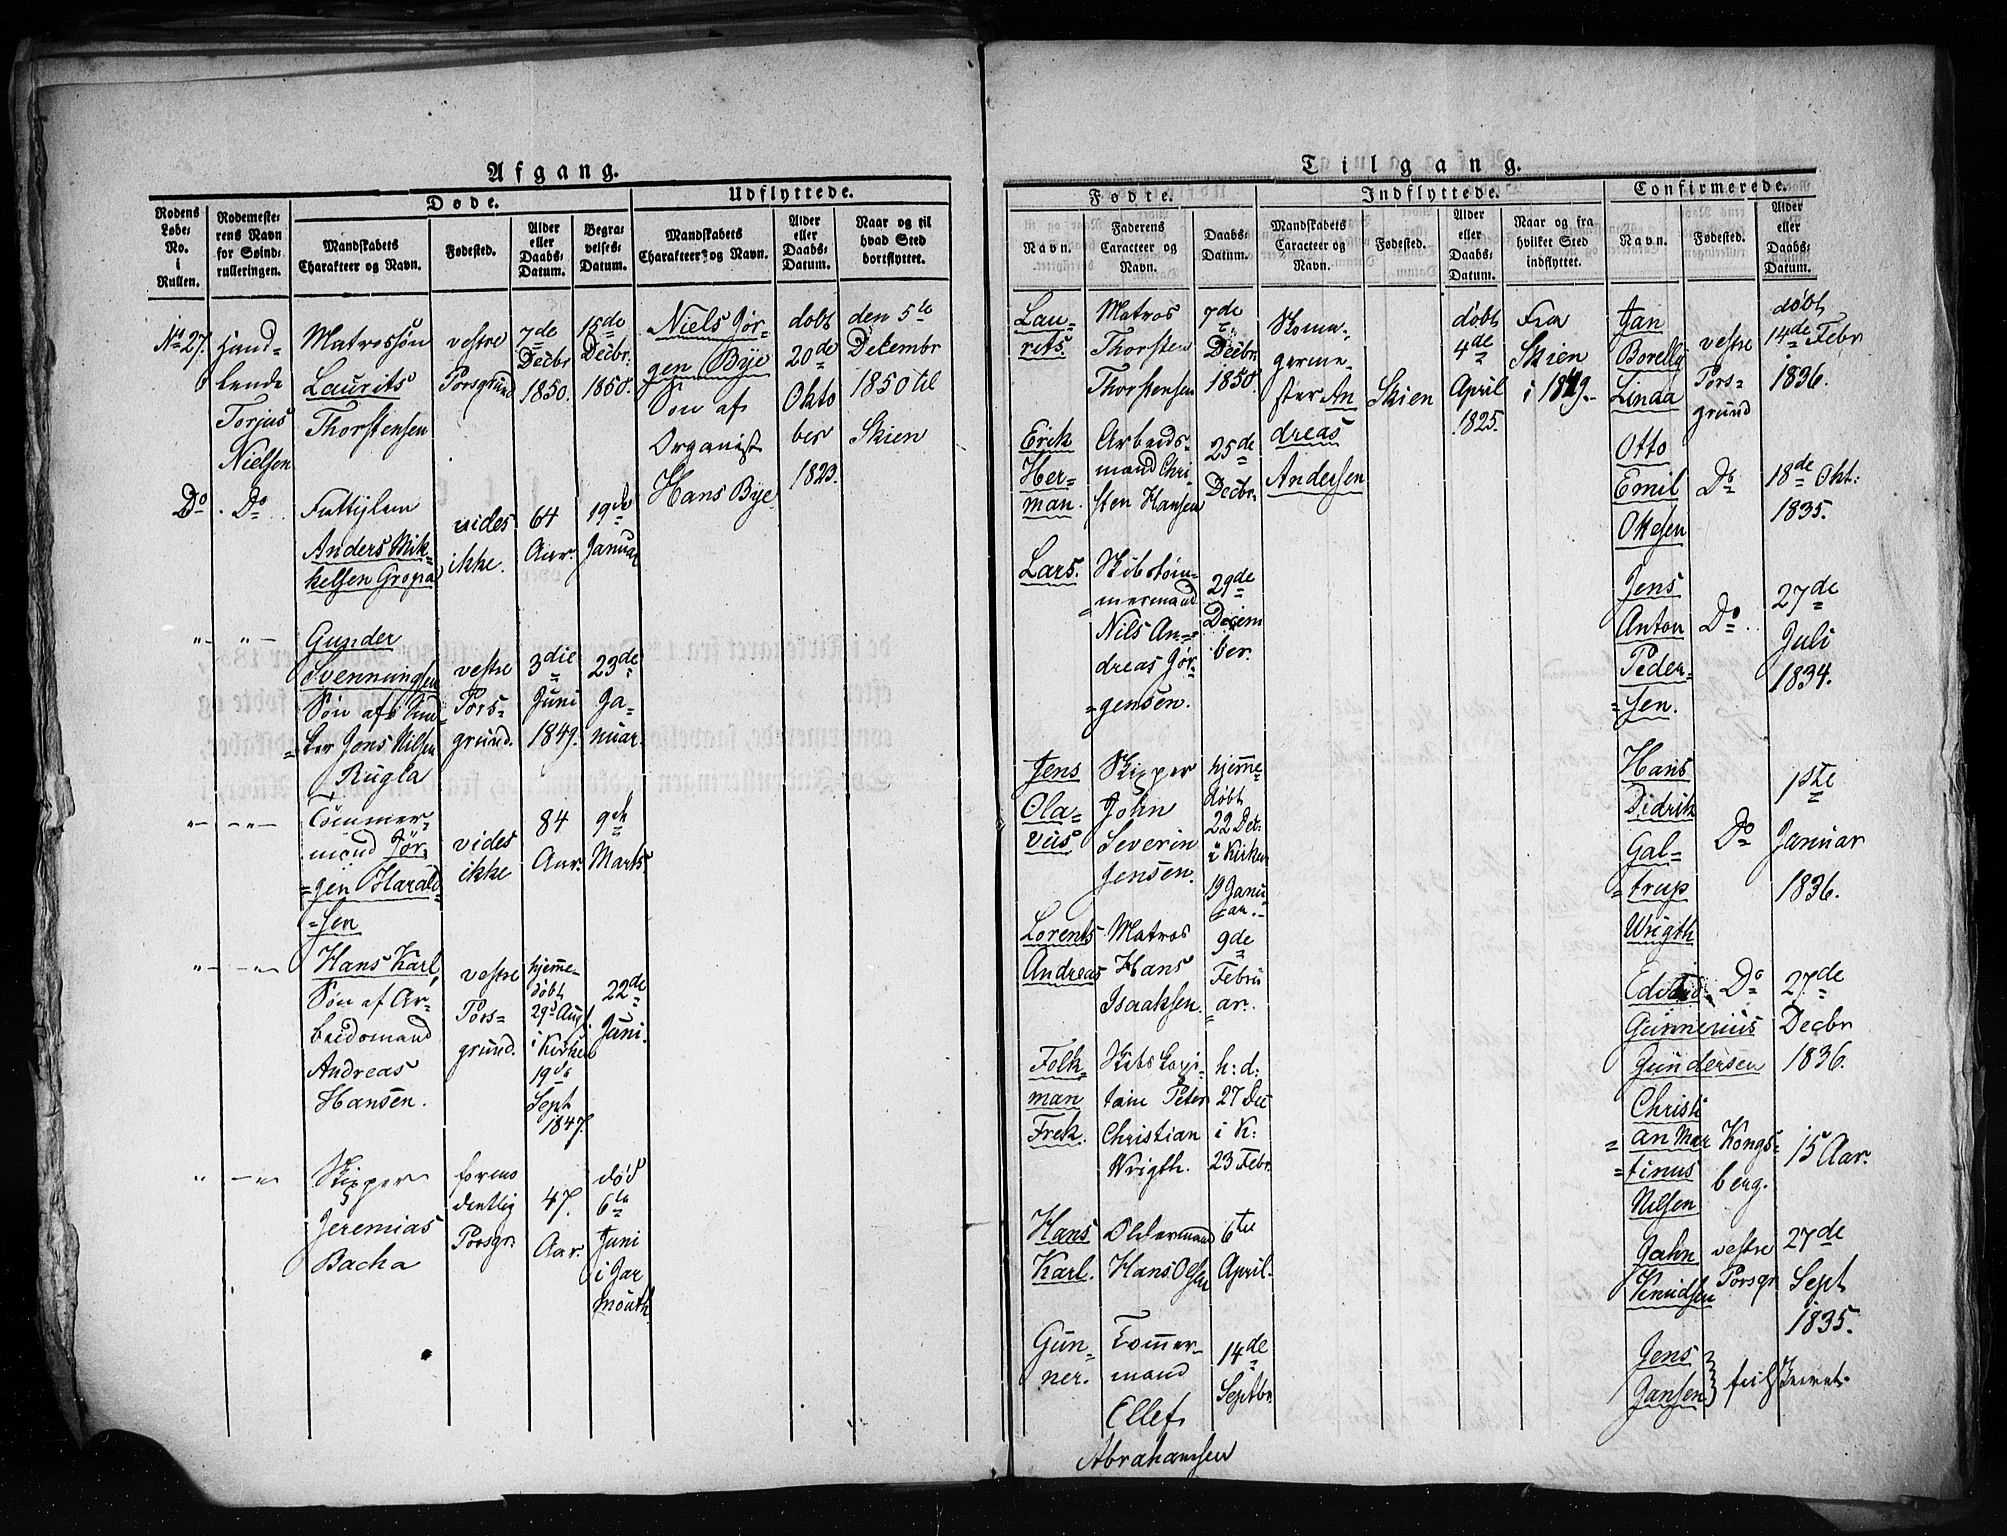 Afgang.
Døde.
Udflyttede.
Rodens Løbe-No. i Rullen.
Rodemesterens Navn for Søindrulleringen.
Mandskabets Charakteer og Navn.
Fødested.
Alder eller Daabs-Datum.
Begravelses-Datum.
Mandskabets Charakteer og Navn.
Alder eller Daabs-Datum.
Naar og til hvad Sted bortflyttet.
No 27.
Handlende
Torjus
Nielsen
Matrossøn
Laurits
Thorstensen
vestre
Porsgrund
7de
Decbr
1850.
15de
Decbr.
1850.
Niels Jør-
gen Bye
Søn af
Organist
Hans Bye
døbt
20de
Okto
ber
1823.
den 5te
Decembr
1850 til
Skien
Do
Do
Fattiglem
Anders Mik-
kelsen Gropa
vides
ikke.
64
Aar.
19de
Januar
Gunder
Svenningsen
Søn af
Jens Nilsen
Rugla
vestre
Pors-
grund.
3die
Juni
1849.
23de
Ja-
nuar.
Tømmer-
mand Jør-
gen Harald-
sen
vides
ikke
84
Aar.
9de
Marts.
Hans Karl,
Søn af Ar-
beidsmand
Andreas
Hansen.
vestre
Pors-
grund.
hjemme-
døbt
29d Aug.
i Kirken
19de
Sept
1847.
22de
Juni.
Skipper
Jeremias
Bacha
formo
dentlig
Porsgr.
47.
Aar.
død
6te
Juni
i Jar
mouth
Tilgang.
Fødte.
Indflyttede.
Confirmerede.
Navn.
Faderens Caracteer og Navn.
Daabs-Datum.
Mandskabets Caracteer og Navn.
Fødested.
Alder eller Daabs-Datum.
Naar og fra hvilket Sted indflyttet.
Navn.
Fødested.
Alder eller Daabs-Datum.
Lau-
rits.
Matros
Thorsten
Thorstensen
7de
Decbr
1850.
Skoma-
germe-
ster An
dreas
Andersen
Skien
døbt
4de
April
1825.
Fra
Skien
i 1849.
Jan
Borelly
Linda
vestre
Pors-
grund
døbt
14de Febr
1836.
Erik
Her-
man.
Arbeids-
mand Chri-
sten Hansen
25de
Decbr.
Otto
Emil
Ottesen
Do
18de Okt:
1835.
Lars.
Skibstøm-
mermand
Nils An-
dreas Jør-
gensen.
29de
Decem
ber.
Jens
Anton
Peder-
sen.
Do
27de
Juli
1834.
Jens
Ola-
vus
Skipper
John
Severin
Jensen.
hjemme-
døbt
22 Dec:
i Kirken
19 Janu
ar.
Hans
Didrik
Gal-
trup
Wrigth
Do
1ste
Januar
1836.
Lorents
Andreas
Matros
Hans
Isaaksen.
9de
Febru
ar.
Gunnerius
Gundersen
Do
27de
Decbr
1836.
Folk-
man
Frek.
Skibs Capi-
tain Peter
Christian
Wrigth.
h: d:
27 Dec
i K:
23 Febr.
Christi
an Mar
tinus
Nilsen
Kongs-
berg.
15 Aar.
Hans
Karl.
Oldermand
Hans Olsen
6te
April.
Jahn
Knudsen
vestre
Porsgr
27de
Sept
1835.
Gun-
ner.
Tømmer-
mand
Ellef
Abrahamsen
14de
Septbr.
Jens
Jansen